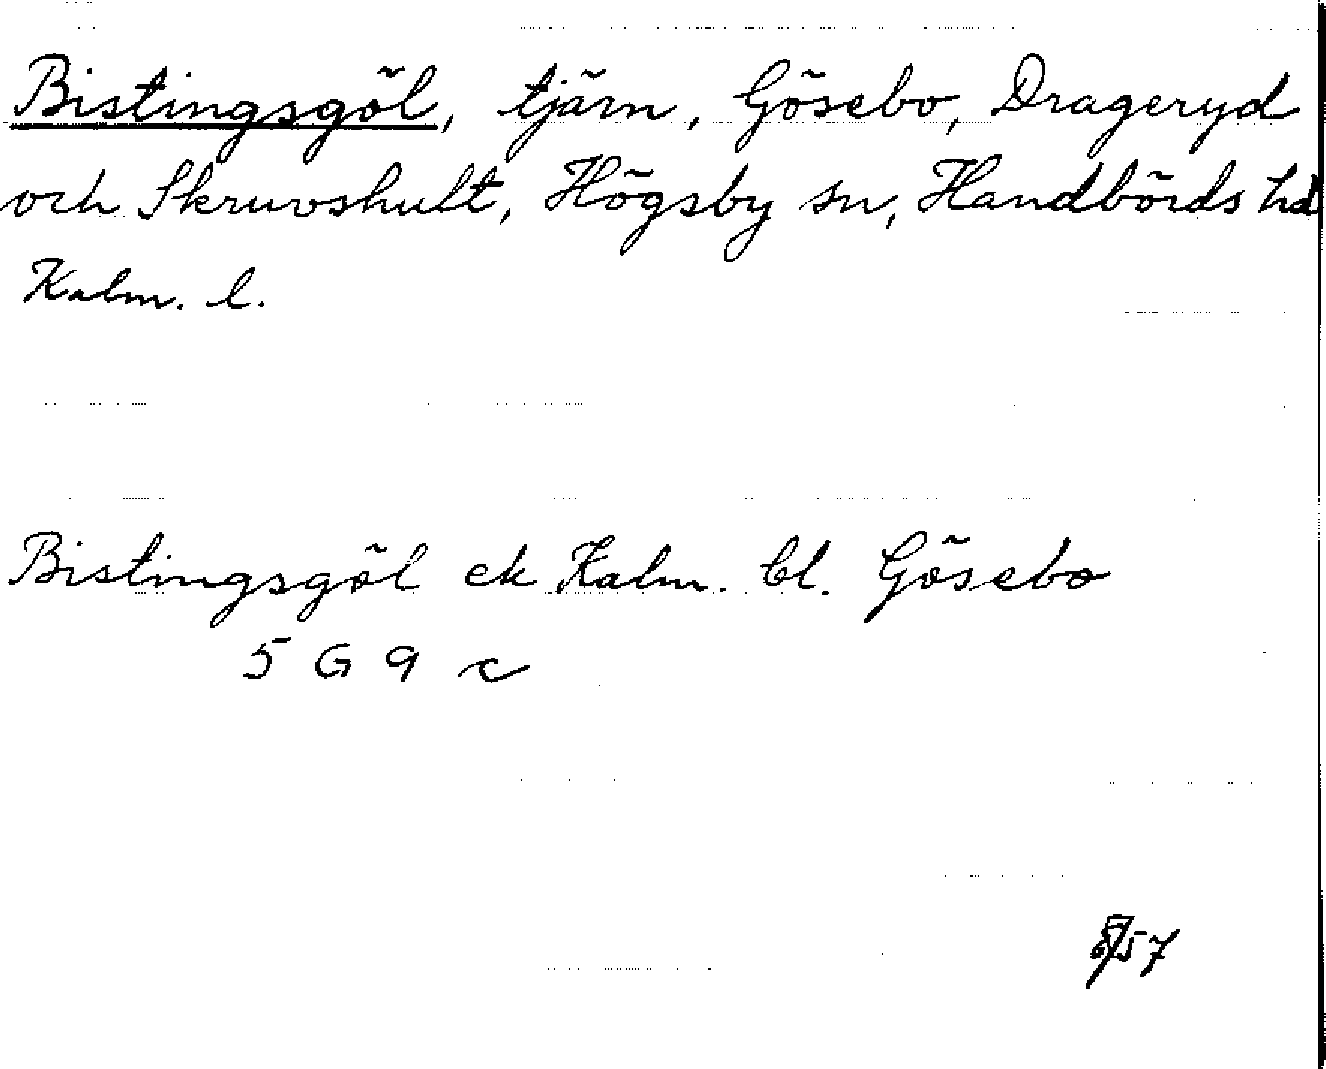 Bistingsgöl, tjärn, Gösebo, Drageryd
och Skruvshult, Högsby sn, Handbörds hd
Kalm. l.
Bistingsgöl ek Kalm. bl. Gösebo
5 G 9 c